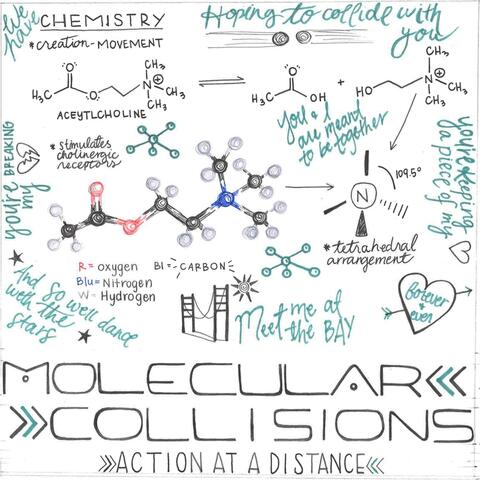 We
have
CHEMISTRY
*creation-MOVEMENT
Hoping to collide with
you
O
H₃C
O
N
⊕
CH₃
CH₃
CH₃
ACEYTLCHOLINE
O
H₃C
OH
+
HO
N
⊕
CH₃
CH₃
CH₃
*stimulates
cholinergic
receptors
you & I
are meant
to be together
you're BREAKING
my
you're keeping
a piece of my
N
109.5°
*tetrahedral
arrangement
R = oxygen
Bl = CARBON
Blu = Nitrogen
W = Hydrogen
And so we'll dance
with the
stars
Meet me at
the BAY
forever &
ever
MOLECULAR
COLLISIONS
ACTION AT A DISTANCE